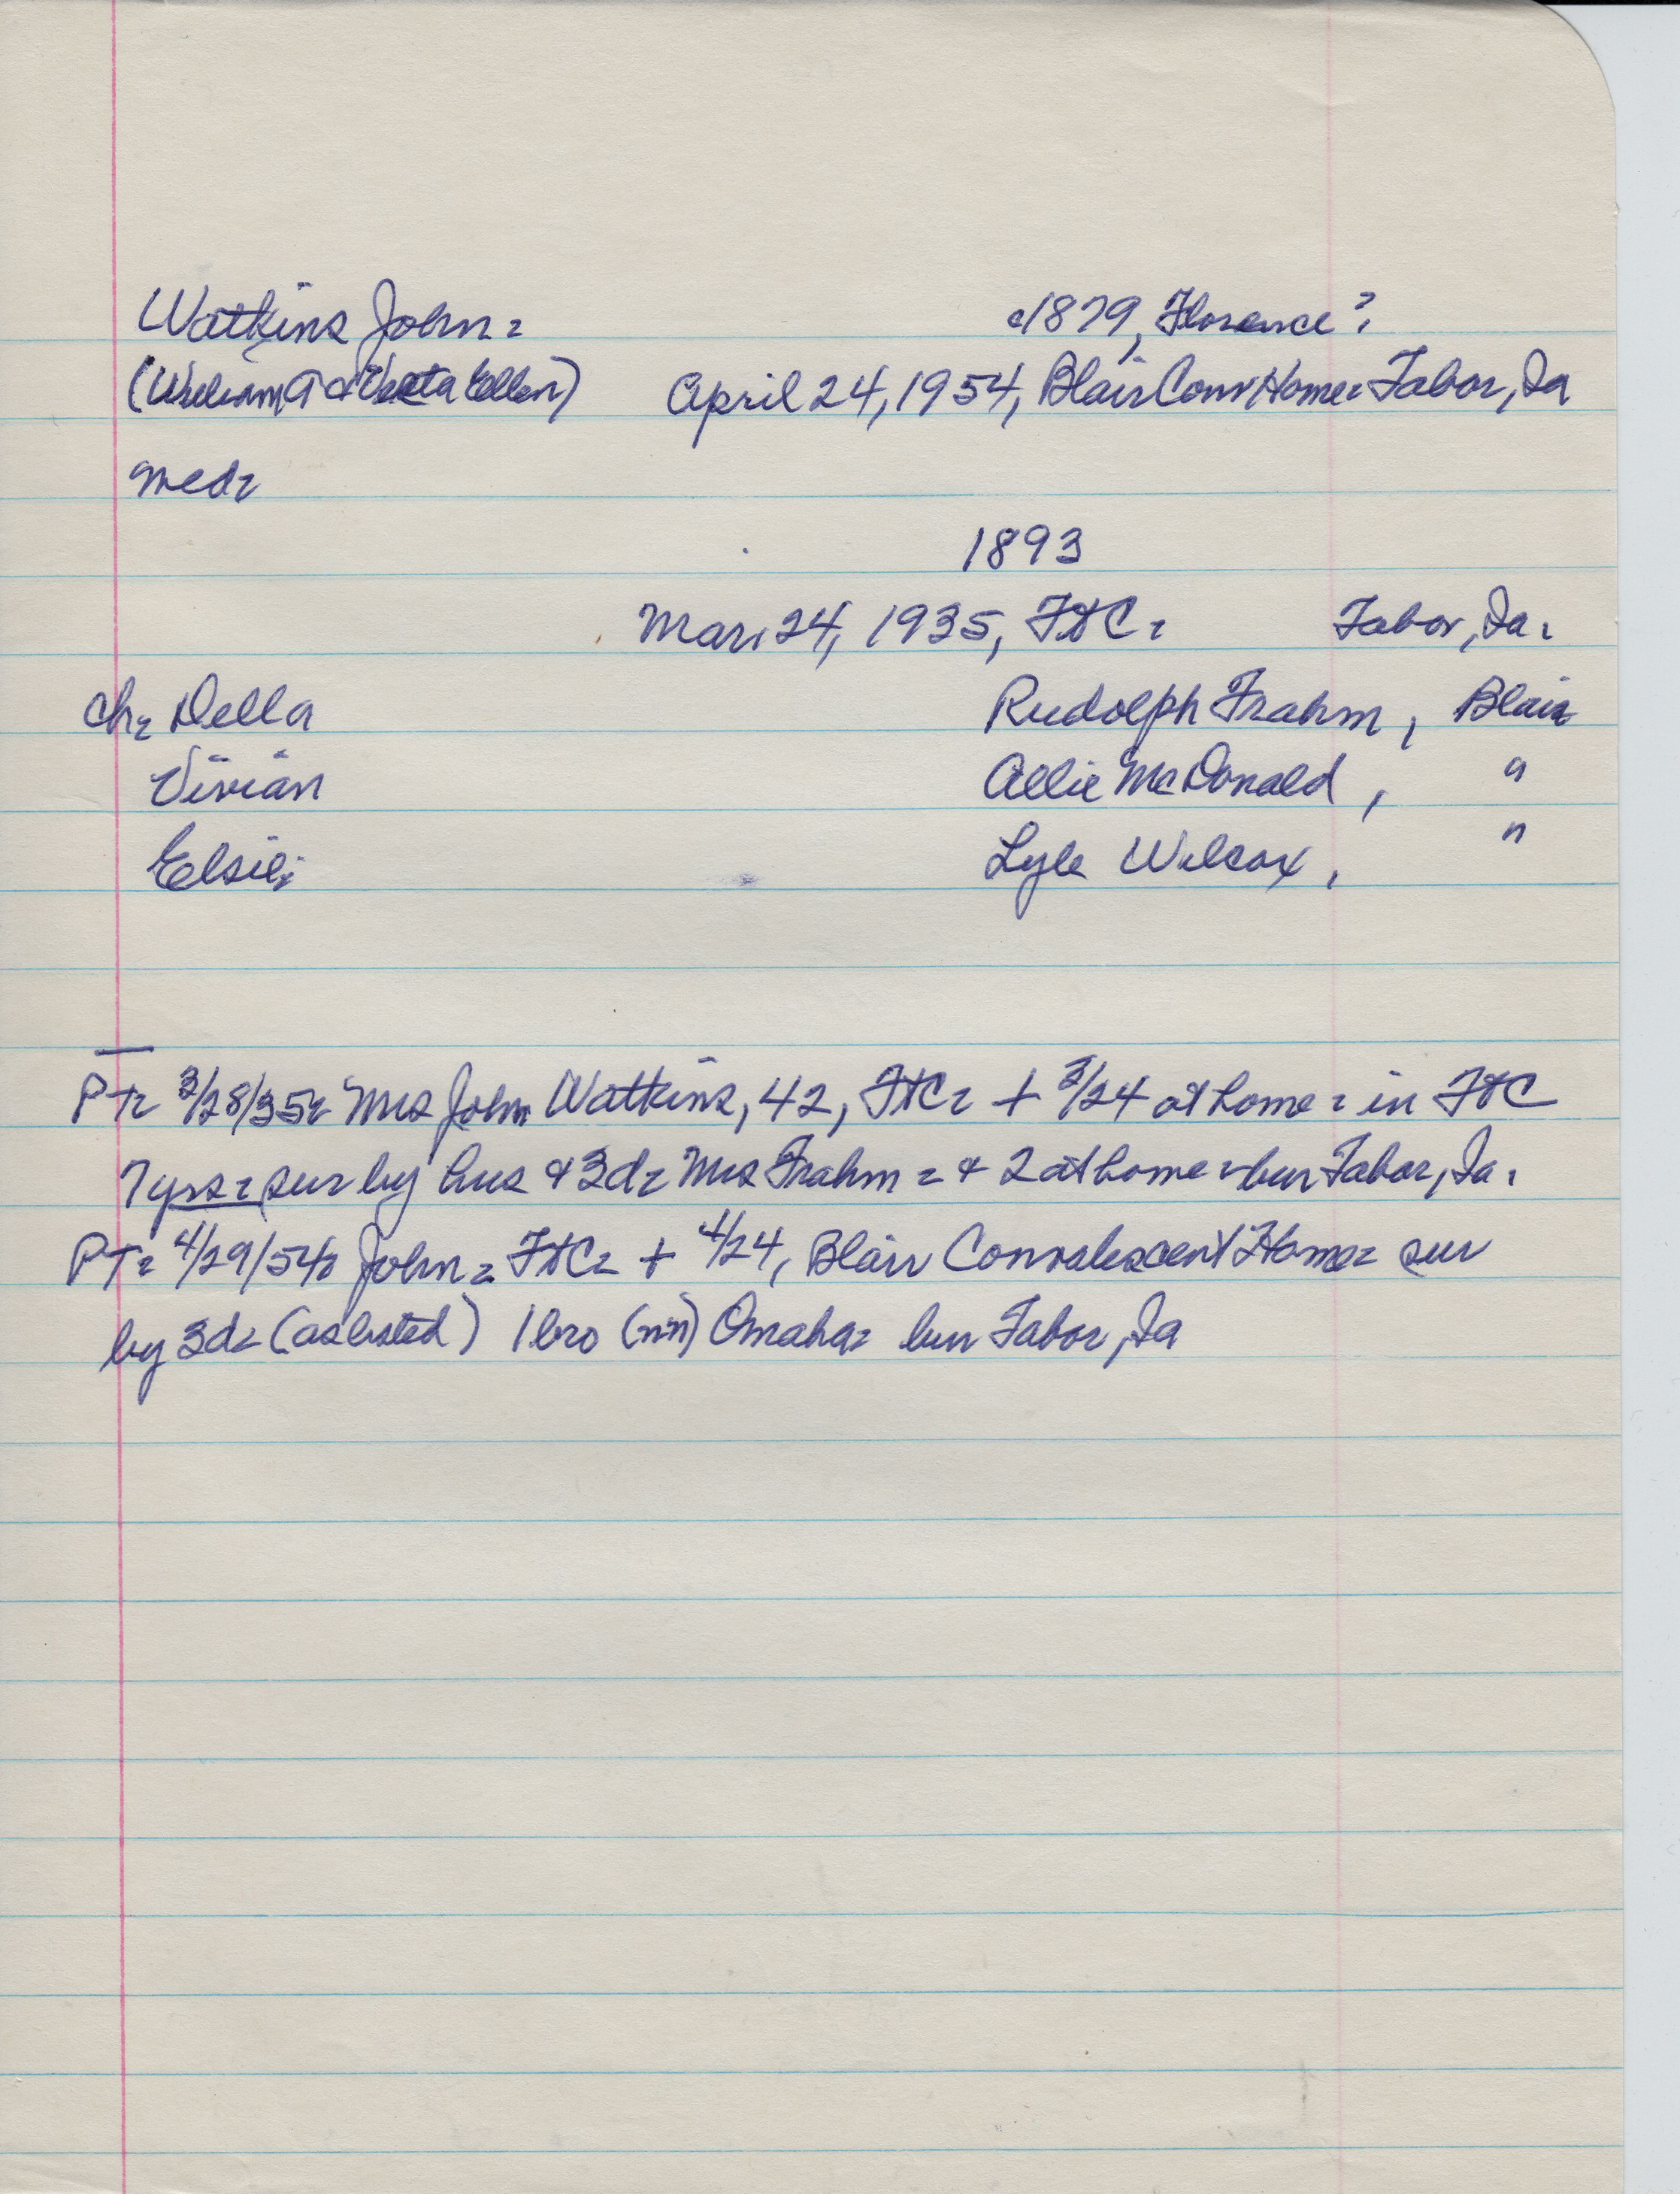 Watkins John = c1879, Florence?
(William A & Ellen) April 24, 1954, Blair Conv Home = Tabor, Ia
med =
1893
Mar. 24, 1935, FtC = Tabor, Ia.
Ch = Della Rudolph Frahm, Blair
Vivian Allie McDonald, "
Elsie Lyle Wilcox, "
PT = 3/28/35 = Mrs John Watkins, 42, FtC = + 3/24 at home = in FtC
7 yrs = sur by hus & 3d = Mrs Frahm = & 2 at home = bur Tabor, Ia.
PT = 4/29/54 = John = FtC = + 4/24, Blair Convalescent Home = sur
by 3d = (as listed) 1 bro (nn) Omaha = bur Tabor, Ia